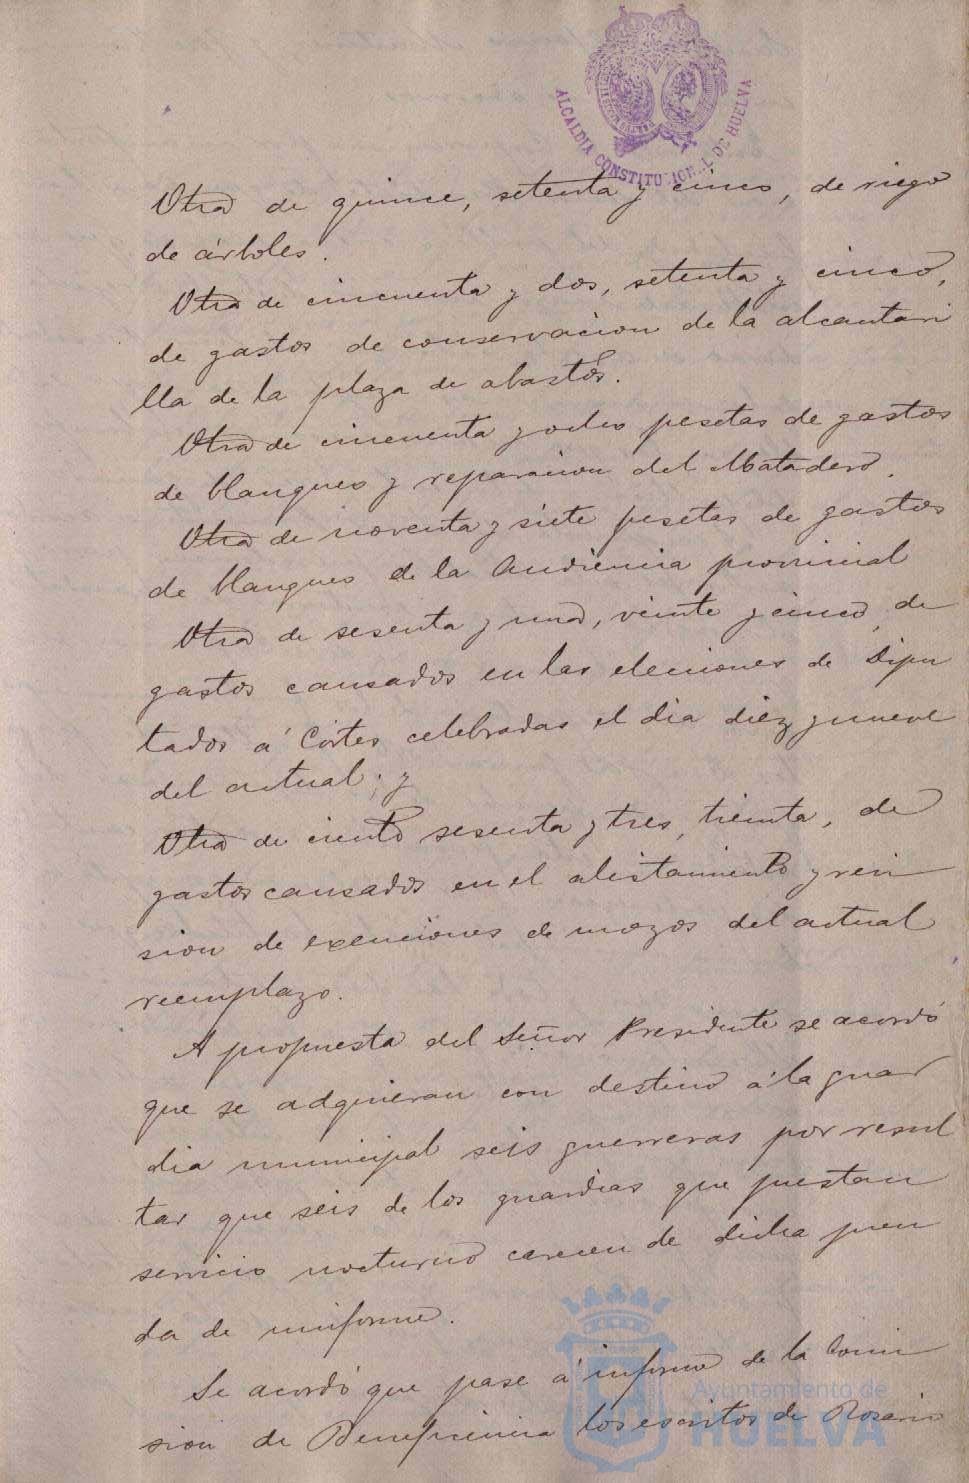 ALCALDIA CONSTITUCIONAL DE HUELVA
Otra de quince, setenta y cinco, de riego
de árboles.
Otra de cincuenta y dos, setenta y cinco,
de gastos de conservacion de la alcantari
lla de la plaza de abastos.
Otra de cincuenta y ocho pesetas de gastos
de blanqueo y reparacion del Matadero.
Otra de noventa y siete pesetas de gastos
de blanqueo de la Audiencia provincial
Otra de sesenta y una, veinte y cinco, de
gastos causados en las elecciones de Dipu
tados á Córtes celebradas el dia diez y nueve
del actual; y
Otra de ciento sesenta y tres, treinta, de
gastos causados en el alistamiento y revi
sion de exenciones de mozos del actual
reemplazo.
A propuesta del Señor Presidente se acordó
que se adquieran con destino á la guar
dia municipal seis guerreras por resul
tar que seis de los guardias que prestan
servicio nocturno carecen de dicha pren
da de uniforme.
Se acordó que pase á informe de la Comi
sion de Beneficencia los escritos de Rosario
Ayuntamiento de
HUELVA